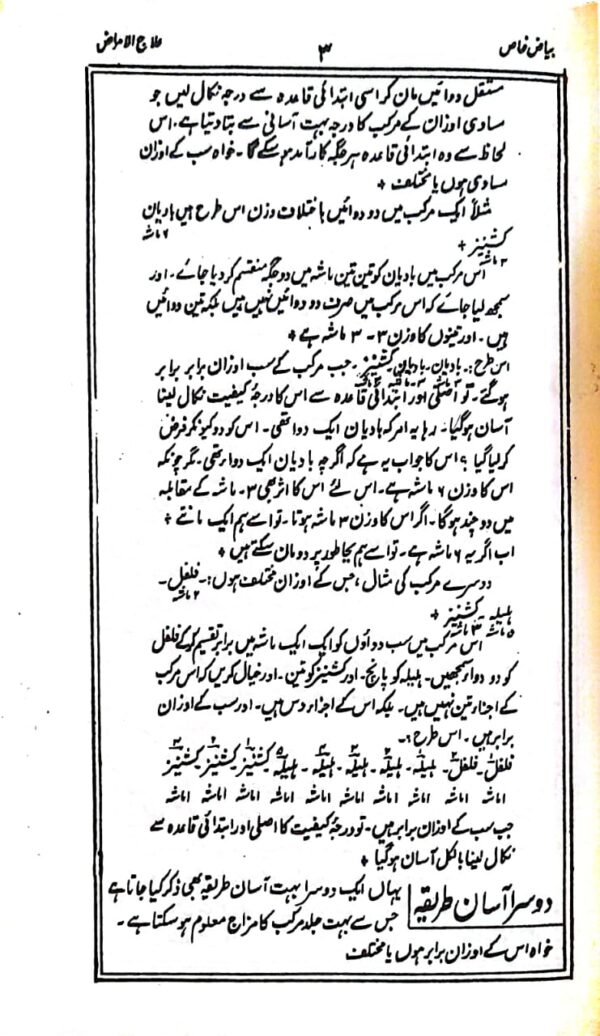 بیاض خاص ۳ علاج الامراض
مستقل دوائیں مان کر اسی ابتدائی قاعدہ سے درجہ نکال لیں جو
مساوی اوزان کے مرکب کا درجہ بہت آسانی سے بتا دیتا ہے۔ اس
لحاظ سے وہ ابتدائی قاعدہ ہر جگہ کارآمد ہو سکے گا۔ خواہ سب کے اوزان
مساوی ہوں یا مختلف +
مثلاً ایک مرکب میں دو دوائیں باختلاف وزن اس طرح ہیں بادیان
۶ ماشہ
کشنیز +
۳ ماشہ
اس مرکب میں بادیان کو تین تین ماشہ میں دو جگہ منقسم کر دیا جائے۔ اور
سمجھ لیا جائے کہ اس مرکب میں صرف دو دوائیں نہیں ہیں بلکہ تین دوائیں
ہیں۔ اور تینوں کا وزن ۳ - ۳ ماشہ ہے +
اس طرح:۔ بادیان۔ بادیان۔ کشنیز۔ جب مرکب کے سب اوزان برابر برابر
ہو گئے۔ تو اصلی اور ابتدائی قاعدہ سے اس کا درجۂ کیفیت نکال لینا
آسان ہو گیا۔ رہا یہ امر کہ بادیان ایک دوا تھی۔ اس کو دو کیونکر فرض
کر لیا گیا ؟ اس کا جواب یہ ہے کہ اگرچہ بادیان ایک دوا تھی۔ مگر چونکہ
اس کا وزن ۶ ماشہ ہے۔ اس لئے اس کا اثر بھی ۳۔ ماشہ کے مقابلہ
میں دو چند ہو گا۔ اگر اس کا وزن ۳ ماشہ ہوتا۔ تو اسے ہم ایک مانتے +
اب اگر یہ ۶ ماشہ ہے۔ تو اسے ہم بجا طور پر دو مان سکتے ہیں +
دوسرے مرکب کی مثال، جس کے اوزان مختلف ہوں:۔ فلفل۔
۲ ماشہ
ہلیلہ۔ کشنیز +
۵ ماشہ ۳ ماشہ
اس مرکب میں سب دواؤں کو ایک ایک ماشہ میں برابر تقسیم کر کے فلفل
کو دو دوا سمجھیں۔ ہلیلہ کو پانچ۔ اور کشنیز کو تین۔ اور خیال کریں کہ اس مرکب
کے اجزاء تین نہیں ہیں۔ بلکہ اس کے اجزاء دس ہیں۔ اور سب کے اوزان
برابر ہیں۔ اس طرح:۔
فلفل۔ فلفل۔ ہلیلہ۔ ہلیلہ۔ ہلیلہ۔ ہلیلہ۔ ہلیلہ۔ کشنیز کشنیز کشنیز
۱ماشہ ۱ماشہ ۱ماشہ ۱ماشہ ۱ماشہ ۱ماشہ ۱ماشہ ۱ماشہ ۱ماشہ ۱ماشہ
جب سب کے اوزان برابر ہیں۔ تو درجۂ کیفیت کا اصلی اور ابتدائی قاعدہ سے
نکال لینا بالکل آسان ہو گیا +
دوسرا آسان طریقہ
یہاں ایک دوسرا بہت آسان طریقہ بھی ذکر کیا جاتا ہے
جس سے بہت جلد مرکب کا مزاج معلوم ہو سکتا ہے۔
خواہ اس کے اوزان برابر ہوں یا مختلف